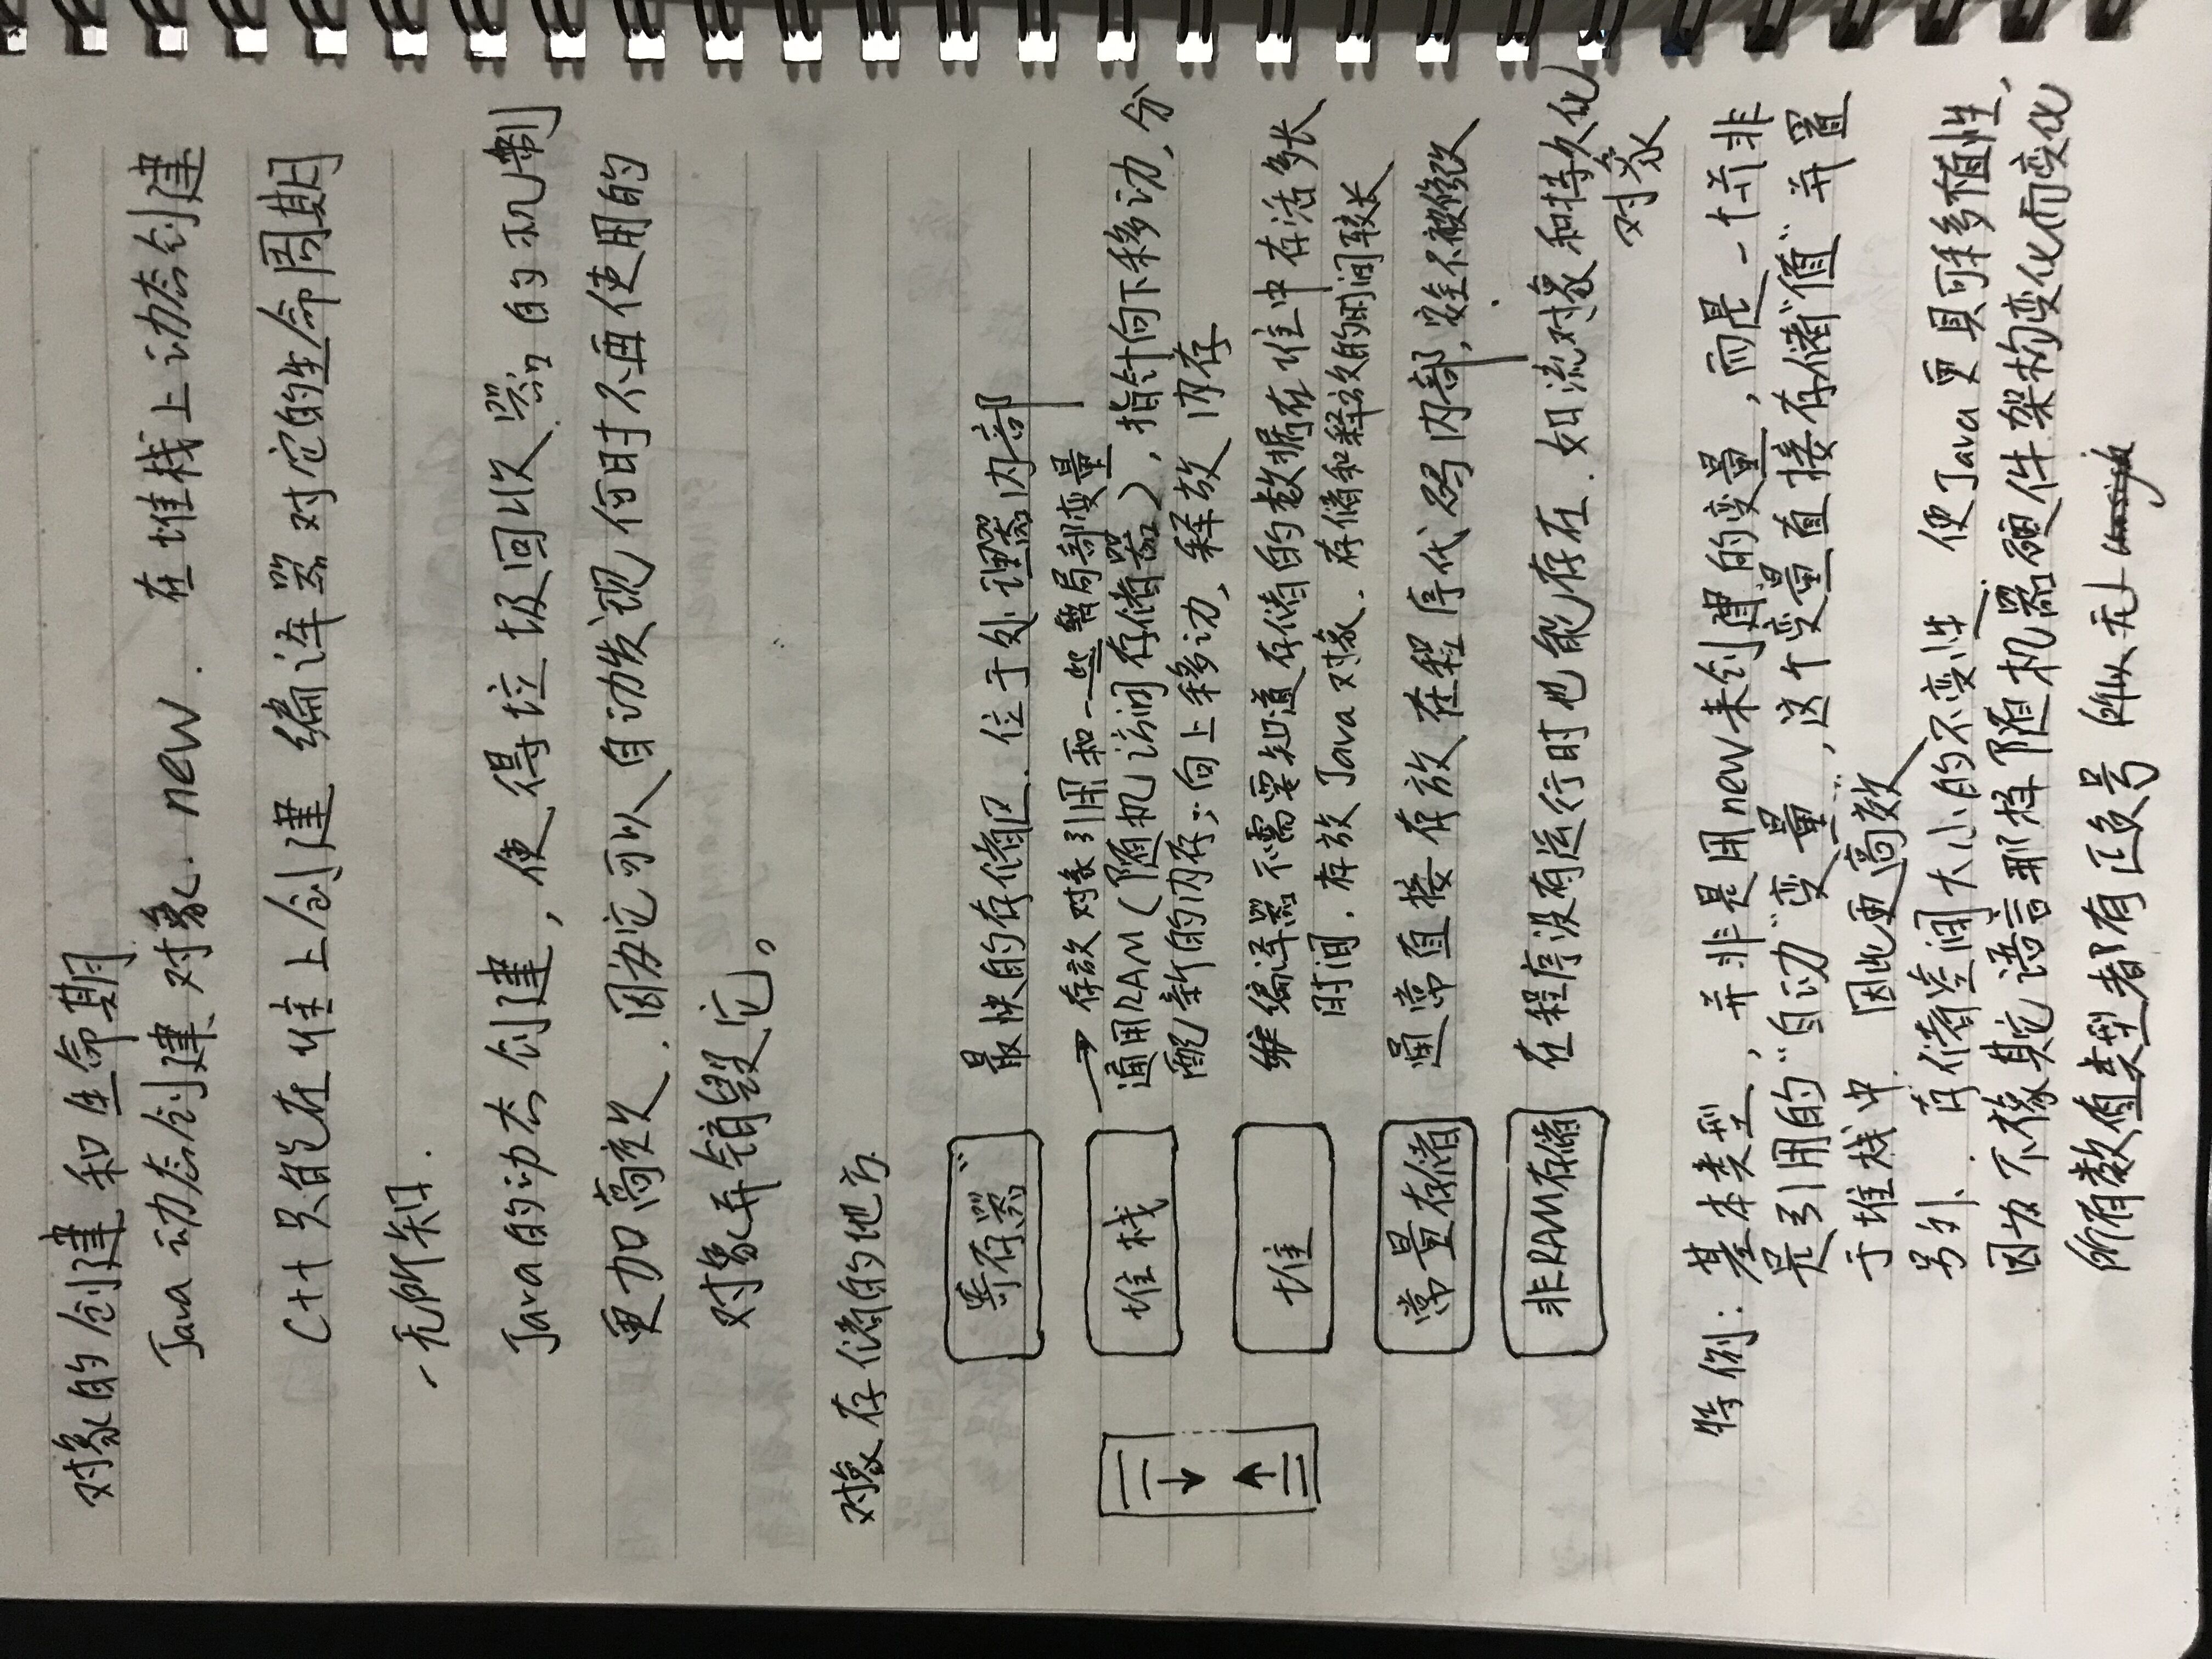 对象的创建和生命期
Java 动态创建对象. new. 在堆栈上动态创建
C++只能在堆上创建 编译器对它的生命周期
一无所知.
Java的动态创建，使得垃圾回收器的机制
更加高效. 因为它可以自动发现何时不再使用的
对象并销毁它。
对象存储的地方
寄存器 最快的存储区. 位于处理器内部
→ 存放对象引用和一些局部变量
堆栈 通用RAM(随机访问存储器), 指针向下移动, 分
配新的内存; 向上移动, 释放内存
堆 编译器不需要知道存储的数据在堆中存活多长
时间. 存放Java对象. 存储和释放的时间较长
常量存储 通常直接存放在程序代码内部, 安全不被修改
非RAM存储 在程序没有运行时也能存在. 如流对象和持久化
对象
特例: 基本类型, 并非是用new来创建的变量, 而是一个并非
是引用的"自动"变量, 这个变量直接存储"值"并置
于堆栈中. 因此更高效
另外. 存储空间大小的不变性. 使Java更具可移植性,
因为不像其它语言那样随机器硬件架构变化而变化
所有数值类型都有正负号 所以无